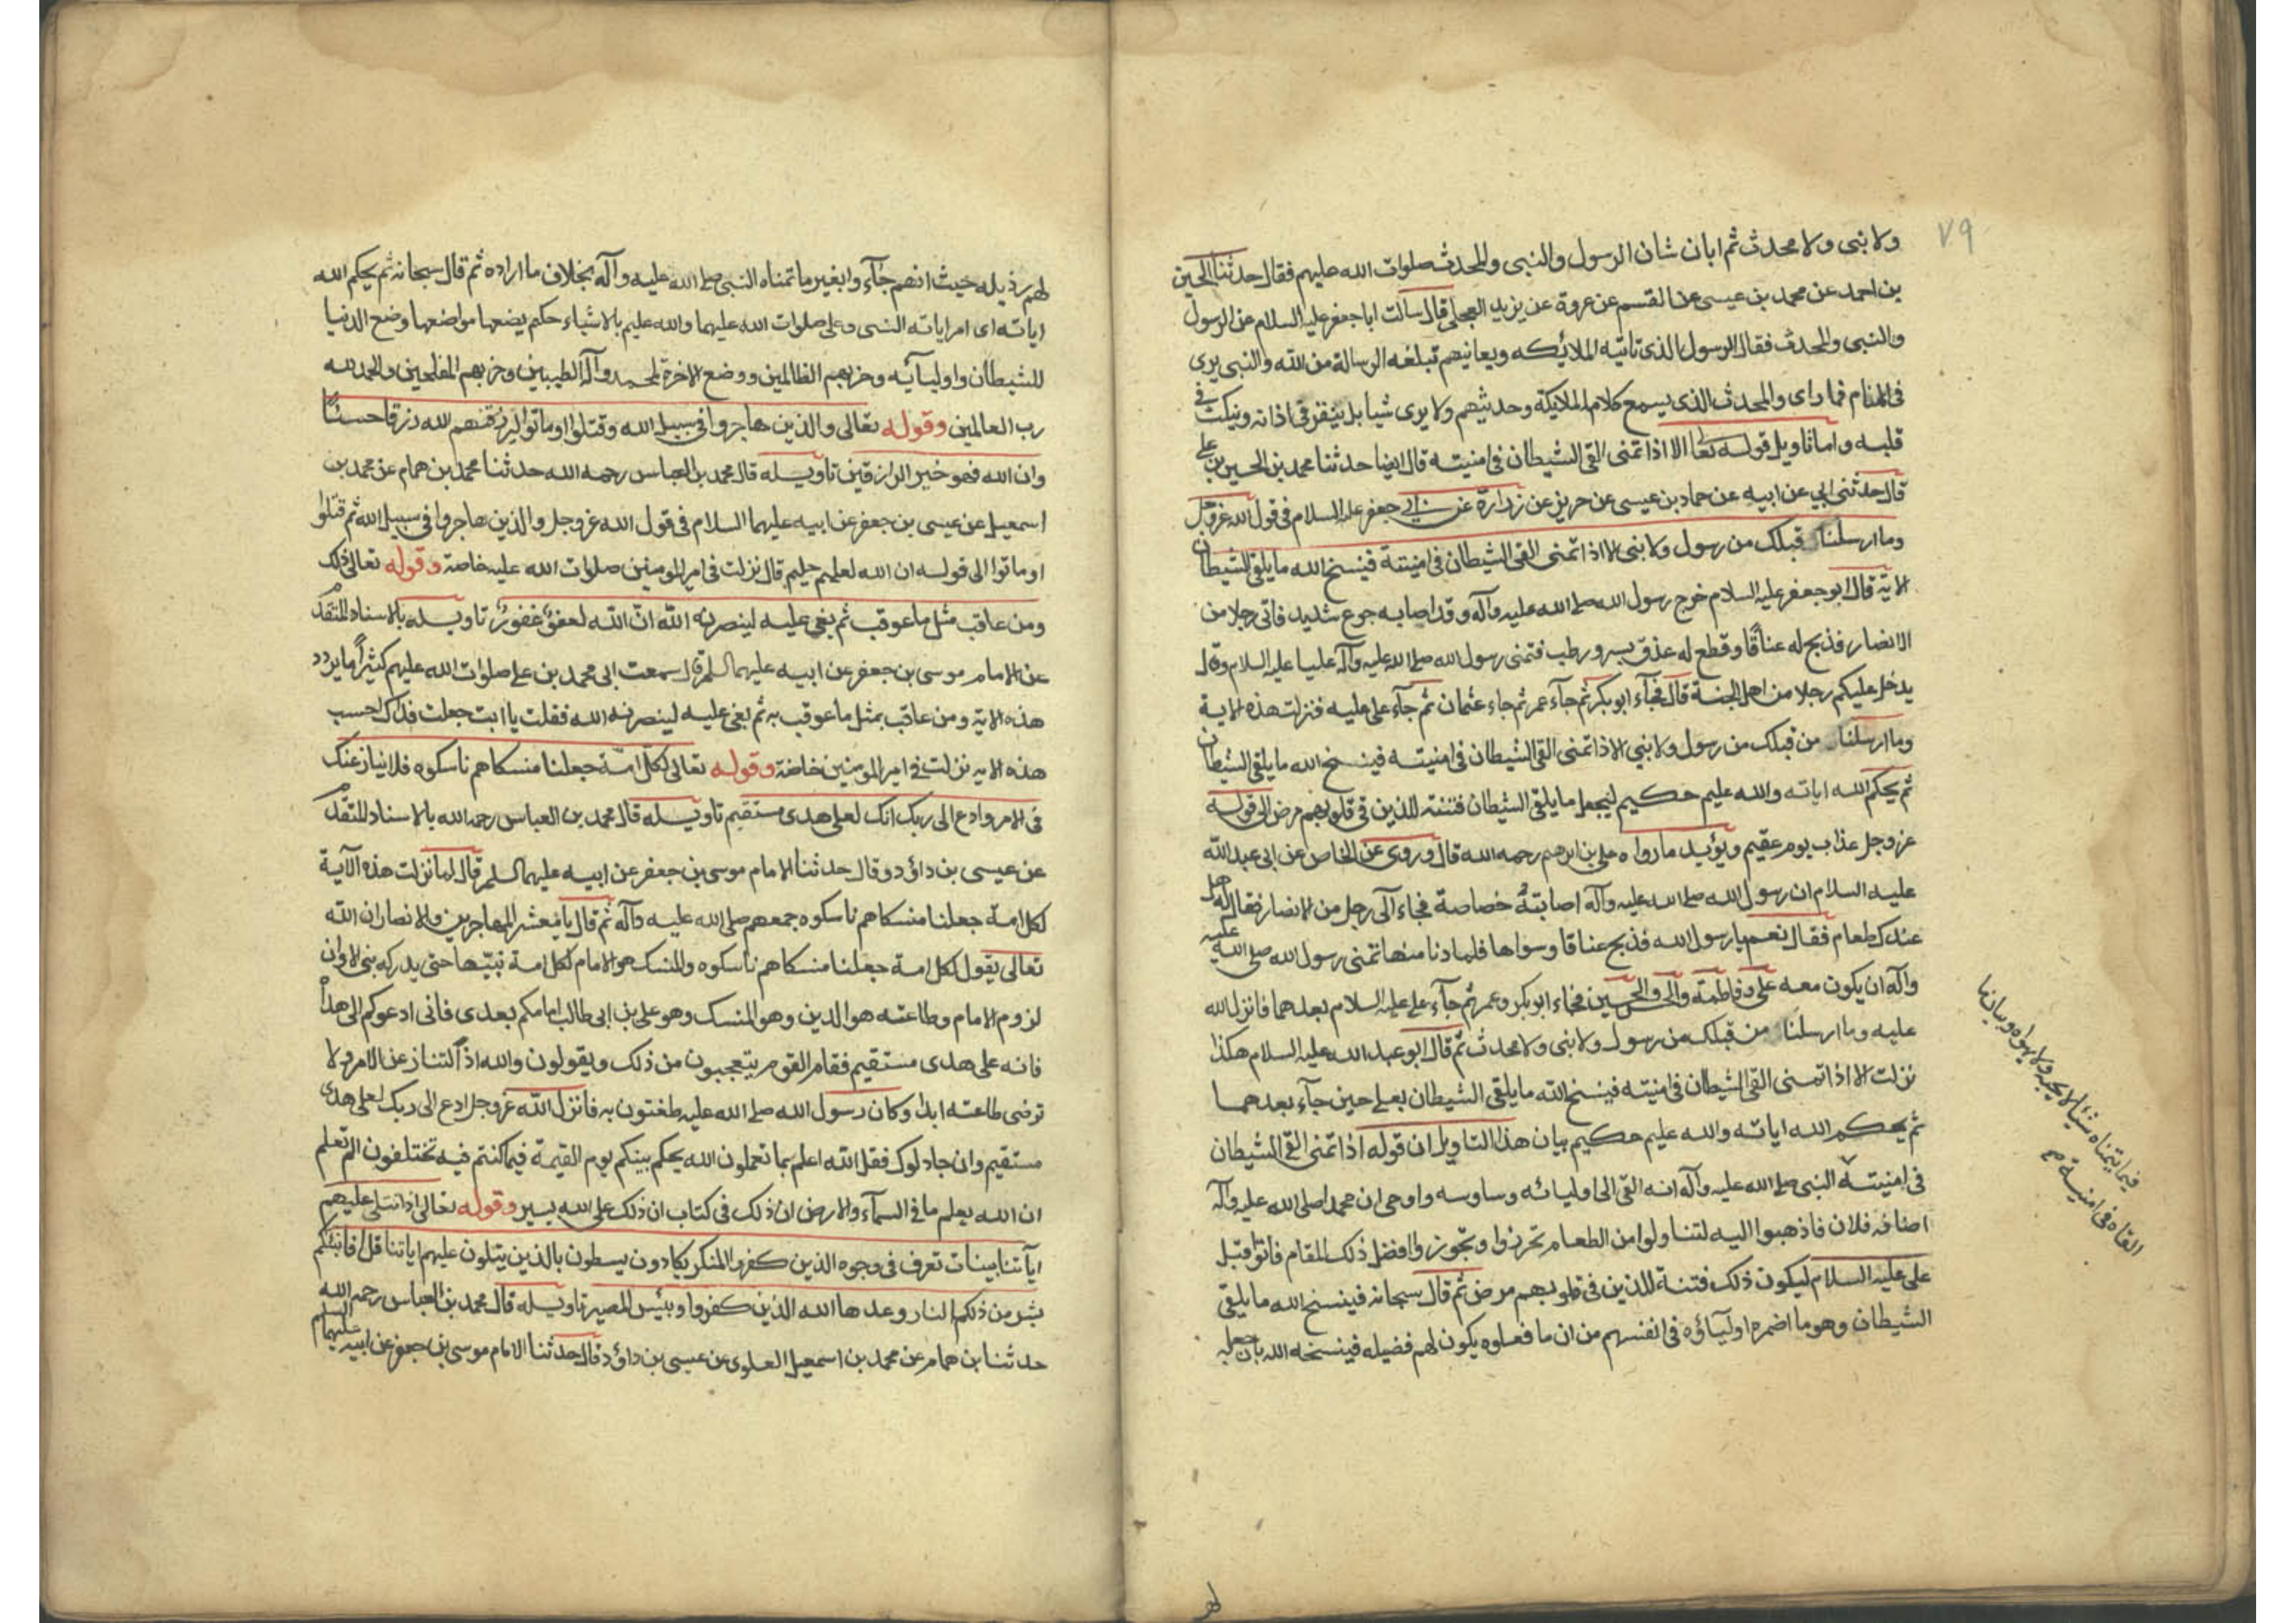 ٧٩
ولا نبى ولا محدث ثم ابان شان الرسول والنبى والمحدث صلوات الله عليهم فقال حدثنا الحسين
بن احمد عن محمد بن عيسى عن القسم عن عروة عن يزيد العجلى قال سالت ابا جعفر عليه السلام عن الرسول
والنبى والمحدث فقال الرسول الذى تاتيه الملائكه ويعانيهم تبلغه الرسالة من الله والنبى يرى
فى المنام فما راى والمحدث الذى يسمع كلام الملايكة وحديثهم ولا يرى شيا بل ينقر فى اذانه وينكت فى
قلبه واما تاويل قوله تعا الا اذا تمنى القى الشيطان فى امنيته قال ايضا حدثنا محمد بن الحسين بن على
قال حدثنى ابي عن ابيه عن حماد بن عيسى عن حريز عن زرارة عن ابى جعفر عليه السلام فى قول الله عز وجل
وما ارسلنا قبلك من رسول ولا نبى الا اذا تمنى القى الشيطان فى امنيته فينسخ الله ما يلقى الشيطان
الاية قال ابو جعفر عليه السلام خرج رسول الله صلى الله عليه وآله وقد اصابه جوع شديد فاتى رجلا من
الانصار فذبح له عناقًا وقطع له عذق بسر ورطب فتمنى رسول الله صلى الله عليه وآله عليا عليه السلام وقال
يدخل عليكم رجلا من اهل الجنة قال فجآء ابو بكر ثم جآء عمر ثم جاء عثمان ثم جآء على عليه فنزلت هذه الاية
وما ارسلنا من قبلك من رسول ولا نبي الا اذا تمنى القى الشيطان فى امنيته فينسخ الله ما يلقى الشيطان
ثم يحكم الله اياته والله عليم حكيم ليجعل ما يلقى الشيطان فتنة للذين فى قلوبهم مرض الى قوله
عز وجل عذاب يوم عقيم ويؤيد ما رواه على بن ابرهيم رحمه الله قال وروى عن الخاص عن ابى عبد الله
عليه السلام ان رسول الله صلى الله عليه وآله اصابته خصاصة فجاء الى رجل من الانصار فقال له هل
عندك طعام فقال نعم يا رسول الله فذبح عناقا وسواها فلما دنا منها تمنى رسول الله صلى الله عليه
وآله ان يكون معه على وفاطمة والحسن والحسين فجاء ابو بكر وعمر ثم جآء على عليه السلام بعدهما فانزل الله
عليه وما ارسلنا من قبلك من رسول ولا نبى ولا محدث ثم قال ابو عبد الله عليه السلام هكذا
نزلت الا اذا تمنى القى الشيطان فى امنيته فينسخ الله ما يلقى الشيطان بعلى حين جآء بعدهما
ثم يحكم الله اياته والله عليم حكيم بيان هذا التاويل ان قوله اذا تمنى القى الشيطان
فى امنيته النبى صلى الله عليه وآله انه القى الى اوليائه وساوسه واوحى ان محمدا صلى الله عليه وآله
اضافه فلان فاذهبوا اليه لتناولوا من الطعام تحرزوا وتجوزوا فضل ذلك المقام فاتوا قبل
على عليه السلام ليكون ذلك فتنة للذين فى قلوبهم مرض ثم قال سبحانه فينسخ الله ما يلقى
الشيطان وهو ما اضمره اوليآؤه فى انفسهم من ان ما فعلوه يكون لهم فضيله فينسخه الله بان جعله
فيما يتمناه شيئا لا يحبه ولا يهواه وبيان ما
القاه فى امنيته
لهم
لهم رذيله حيث انهم جآءوا بغير ما تمناه النبى صلى الله عليه وآله بخلاف ما اراده ثم قال سبحانه ثم يحكم الله
اياته اى امر اياته النبى وعلى صلوات الله عليهما والله عليم بالاشياء حكم يضعها مواضعها وضع الدنيا
للشيطان واوليآئه وحزبهم الظالمين ووضع الاخرة لمحمد وآله الطيبين وحزبهم المفلحين والحمد لله
رب العالمين وقوله تعالى والذين هاجروا فى سبيل الله وقتلوا او ماتوا ليرزقنهم الله رزقا حسنًا
وان الله فهو خير الرازقين تاويله قال محمد بن العباس رحمه الله حدثنا محمد بن همام عن محمد بن
اسمعيل عن عيسى بن جعفر عن ابيه عليهما السلام فى قول الله عز وجل والذين هاجروا فى سبيل الله ثم قتلوا
او ماتوا الى قوله ان الله لعليم حليم قال نزلت فى امير المومنين صلوات الله عليه خاصة وقوله تعالى ذلك
ومن عاقب مثل ما عوقب ثم بغى عليه لينصرنه الله ان الله لعفو غفور تاويله بالاسناد المتقدم
عن الامام موسى بن جعفر عن ابيه عليهما السلم قال سمعت ابى محمد بن على صلوات الله عليهم كثيرًا ما يردد
هذه الاية ومن عاقب بمثل ما عوقب به ثم بغى عليه لينصرنه الله فقلت يا ابت جعلت فداك احسب
هذه الايه نزلت فى امير المومنين خاصة وقوله تعالى لكل امة جعلنا منسكا هم ناسكوه فلا ينازعنك
فى الامر وادع الى ربك انك لعلى هدى مستقيم تاويله قال محمد بن العباس رحمه الله بالاسناد المتقدم
عن عيسى بن داؤد وقال حدثنا الامام موسى بن جعفر عن ابيه عليهما السلم قال لما نزلت هذه الآية
لكل امة جعلنا منسكا هم ناسكوه جمعهم صلى الله عليه وآله ثم قال يا معشر المهاجرين والانصار ان الله
تعالى يقول لكل امة جعلنا منسكا هم ناسكوه والمنسك هو الامام لكل امة نبيها حتى يدركه نبى الا وان
لزوم الامام وطاعته هو الدين وهو المنسك وهو على بن ابى طالب امامكم بعدى فانى ادعوكم الى هداه
فانه على هدى مستقيم فقام القوم يتعجبون من ذلك ويقولون والله اذا لتنازعن الامر ولا
ترضى طاعته ابدا وكان رسول الله صلى الله عليه طغتون به فانزل الله عز وجل ادع الى ربك لعلى هدى
مستقيم وان جادلوك فقل الله اعلم بما تعملون الله يحكم بينكم يوم القيمة فيما كنتم فيه تختلفون الم تعلم
ان الله يعلم ما فى السمآء والارض ان ذلك فى كتاب ان ذلك على الله يسير وقوله تعالى اذا تتلى عليهم
آياتنا بينات تعرف فى وجوه الذين كفروا المنكر يكادون يسطون بالذين يتلون عليهم اياتنا قل افانبئكم
بشر من ذلكم النار وعدها الله الذين كفروا وبئس المصير تاويله قال محمد بن العباس رحمه الله
حدثنا بن همام عن محمد بن اسمعيل العلوى عن عيسى بن داؤد قال حدثنا الامام موسى بن جعفر عن ابيه عليهما السلم